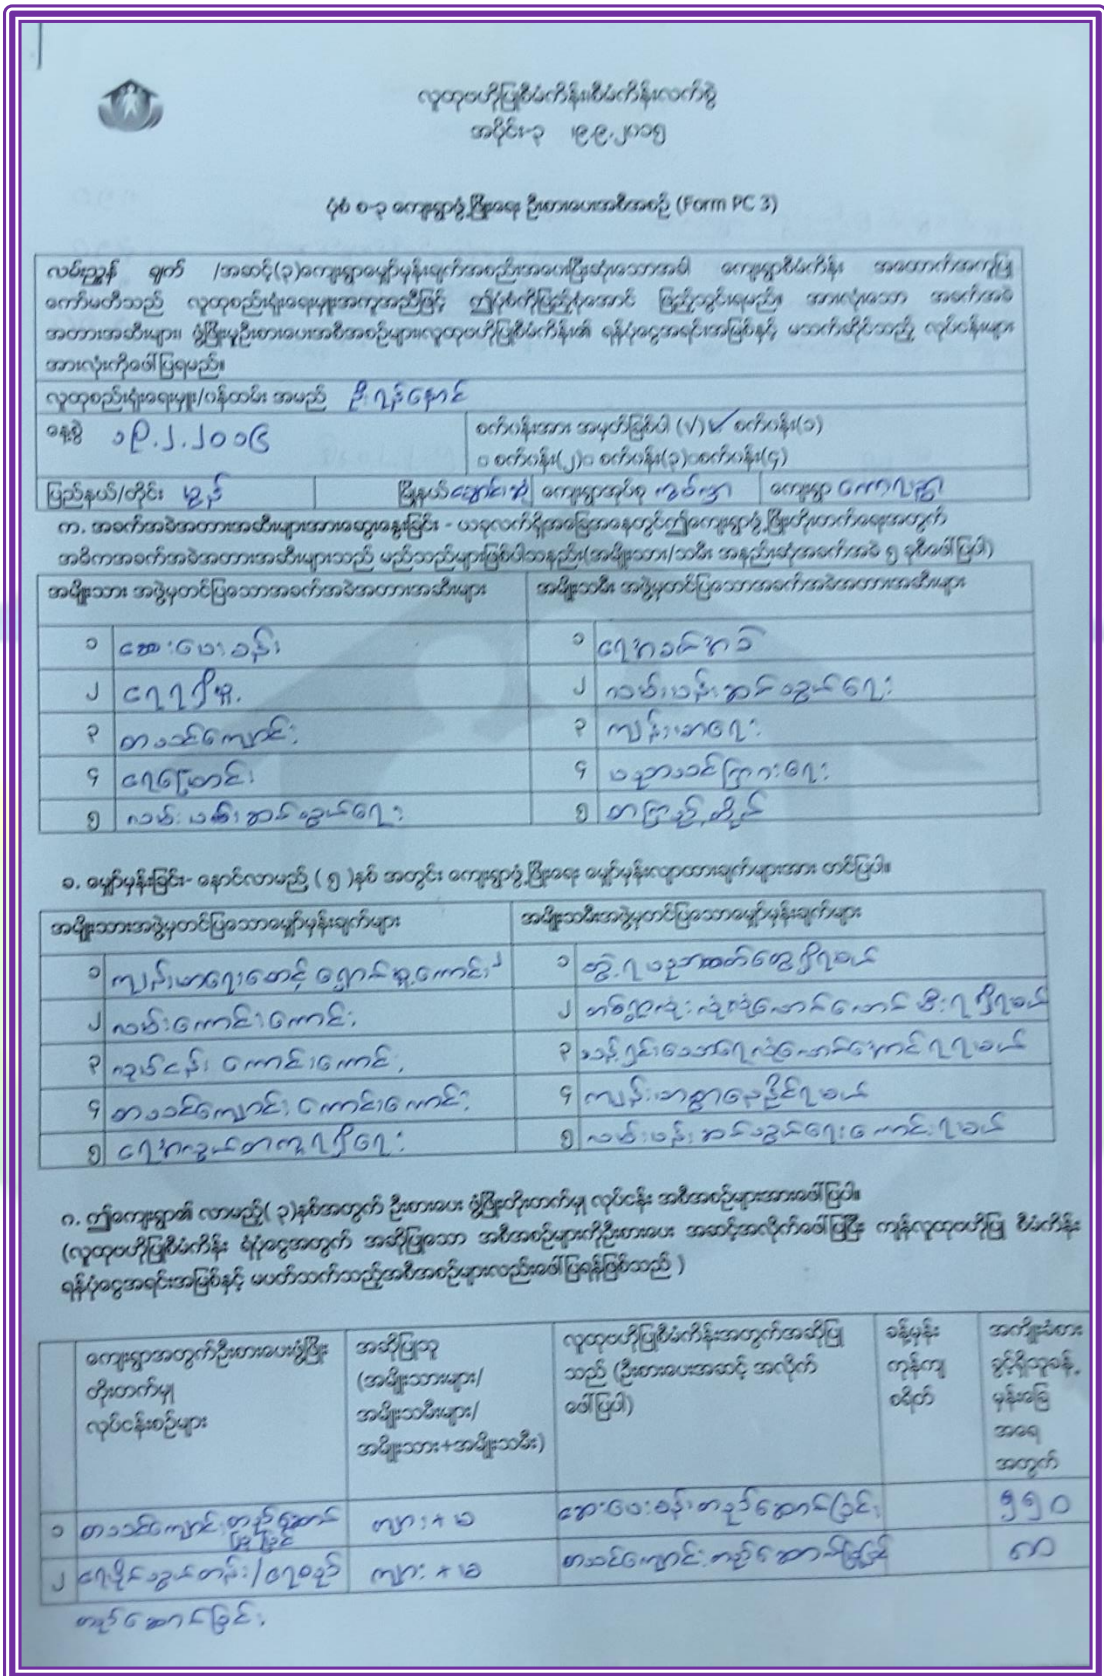 လူထုဗဟိုပြုစီမံကိန်းစီမံကိန်းလက်စွဲ
အပိုင်း-၃ ၊၉.၉.၂၀၁၅
ပုံစံ စ-၃ ကျေးရွာဖွံ့ဖြိုးရေး ဦးစားပေးအစီအစဉ် (Form PC 3)
လမ်းညွှန် ချက် /အဆင့်(၃)ကျေးရွာမျှော်မှန်းချက်အစည်းအဝေးပြီးဆုံးသောအခါ ကျေးရွာစီမံကိန်း အထောက်အကူပြု
ကော်မတီသည် လူထုစည်းရုံးရေးမှူးအကူအညီဖြင့် ဤပုံစံကိုပြည့်စုံအောင် ဖြည့်သွင်းရမည်။ အားလုံးသော အခက်အခဲ
အတားအဆီးများ၊ ဖွံ့ဖြိုးမှုဦးစားပေးအစီအစဉ်များ၊လူထုဗဟိုပြုစီမံကိန်း၏ ရန်ပုံငွေအရင်းအမြစ်နှင့် မသက်ဆိုင်သည့် လုပ်ငန်းများ
အားလုံးကိုဖေါ်ပြရမည်။
လူထုစည်းရုံးရေးမှူး/ဝန်ထမ်း အမည် ဦးရန်နောင်
နေ့စွဲ ၁၉.၂.၂၀၁၆ စက်ဝန်းအား အမှတ်ခြစ်ပါ (√) ✓ စက်ဝန်း(၁)
□ စက်ဝန်း(၂)□ စက်ဝန်း(၃)□စက်ဝန်း(၄)
ပြည်နယ်/တိုင်း မွန် မြို့နယ် ချောင်းဆုံ ကျေးရွာအုပ်စု ကျေးရွာ
က. အခက်အခဲအတားအဆီးများအားဆွေးနွေးခြင်း - ယခုလက်ရှိအခြေအနေတွင်ဤကျေးရွာဖွံ့ဖြိုးတိုးတက်ရေးအတွက်
အဓိကအခက်အခဲအတားအဆီးများသည် မည်သည်များဖြစ်ပါသနည်း(အမျိုးသား/သမီး အနည်းဆုံးအခက်အခဲ ၅ ခုစီဖေါ်ပြပါ)
အမျိုးသား အဖွဲ့မှတင်ပြသောအခက်အခဲအတားအဆီးများ အမျိုးသမီး အဖွဲ့မှတင်ပြသောအခက်အခဲအတားအဆီးများ
၁ ဆေးပေးခန်း ၁ ရေအခက်အခဲ
၂ ရေရရှိမှု ၂ လမ်းပန်းဆက်သွယ်ရေး
၃ စာသင်ကျောင်း ၃ ကျန်းမာရေး
၄ ရေမြောင်း ၄ ပညာသင်ကြားရေး
၅ လမ်းပန်းဆက်သွယ်ရေး ၅ စာကြည့်တိုက်
ခ. မျှော်မှန်းခြင်း- နောင်လာမည် ( ၅ )နှစ် အတွင်း ကျေးရွာဖွံ့ဖြိုးရေး မျှော်မှန်းလျာထားချက်များအား တင်ပြပါ။
အမျိုးသားအဖွဲ့မှတင်ပြသောမျှော်မှန်းချက်များ အမျိုးသမီးအဖွဲ့မှတင်ပြသောမျှော်မှန်းချက်များ
၁ ကျန်းမာရေးစောင့်ရှောက်မှု့ကောင်း ၁ ဘွဲ့ရပညာတတ်တွေရှိရမယ်
၂ လမ်းကောင်းကောင်း ၂ တစ်ရွာလုံးလုံလုံလောက်လောက်မီးရရှိရမယ်
၃ ကောင်းကောင်း ၃ သန့်ရှင်းသောရေလုံလောက်အောင်ရရမယ်
၄ စာသင်ကျောင်းကောင်းကောင်း ၄ ကျန်းမာစွာနေနိုင်ရမယ်
၅ ၅ လမ်းပန်းဆက်သွယ်ရေးကောင်းရမယ်
ဂ. ဤကျေးရွာ၏ လာမည့်( ၃)နှစ်အတွက် ဦးစားပေး ဖွံ့ဖြိုးတိုးတက်မှု လုပ်ငန်း အစီအစဉ်များအားဖေါ်ပြပါ။
(လူထုဗဟိုပြုစီမံကိန်း ရံပုံငွေအတွက် အဆိုပြုသော အစီအစဉ်များကိုဦးစားပေး အဆင့်အလိုက်ဖေါ်ပြပြီး ကျန်လူထုဗဟိုပြု စီမံကိန်း
ရန်ပုံငွေအရင်းအမြစ်နှင့် မပတ်သက်သည့်အစီအစဉ်များလည်းဖေါ်ပြရန်ဖြစ်သည် )
ကျေးရွာအတွက်ဦးစားပေးဖွံ့ဖြိုး
တိုးတက်မှု
လုပ်ငန်းစဉ်များ
အဆိုပြုသူ
(အမျိုးသားများ/
အမျိုးသမီးများ/
အမျိုးသား+အမျိုးသမီး)
လူထုဗဟိုပြုစီမံကိန်းအတွက်အဆိုပြု
သည် (ဦးစားပေးအဆင့် အလိုက်
ဖေါ်ပြပါ)
ခန့်မှန်း
ကုန်ကျ
စရိတ်
အကျိုးခံစား
ခွင့်ရှိသူခန့်
မှန်းခြေ
အရေ
အတွက်
၁ စာသင်ကျောင်းတည်ဆောက်
ပြုခြင်း
ကျား + မ ဆေးပေးခန်းတည်ဆောက်ခြင်း ၅၅၀
၂ ရေပိုက်သွယ်တန်း/ရေစည် ကျား + မ စာသင်ကျောင်းတည်ဆောက်ပြုခြင်း ၈၁
တည်ဆောက်ခြင်း